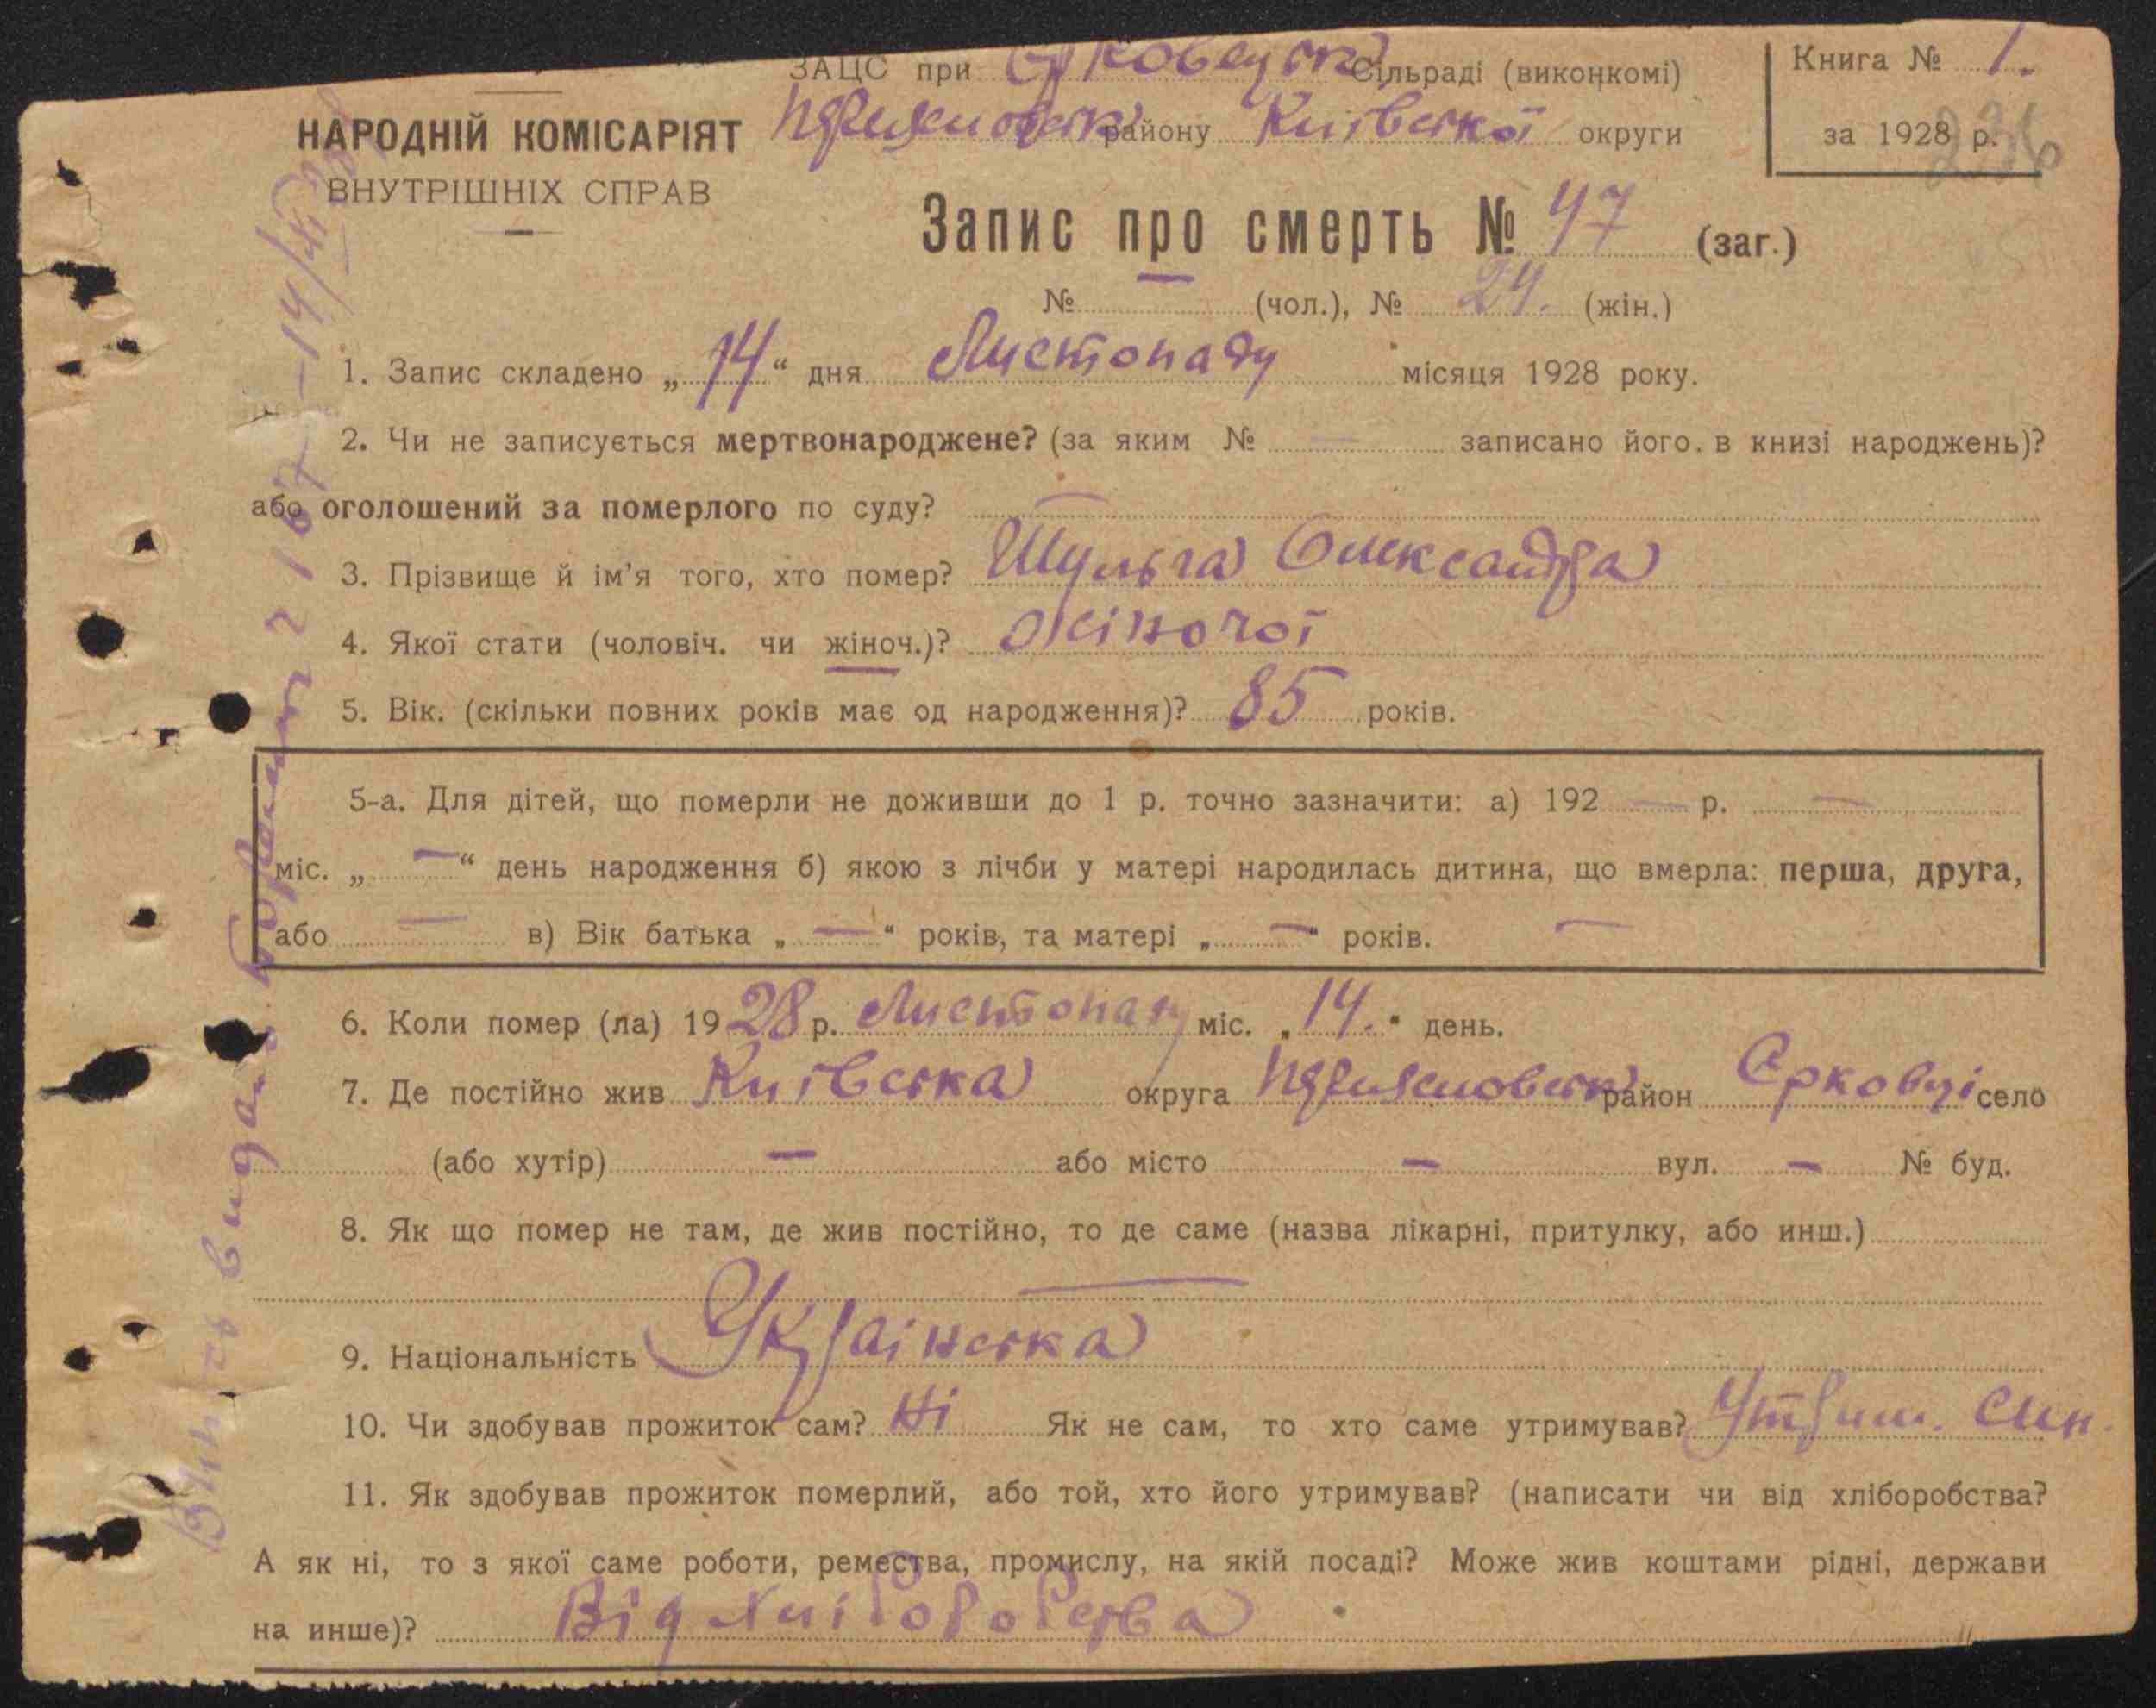 ЗАЦС при Єрковецьк. Сільраді (виконкомі)
Книга № 1.
НАРОДНІЙ КОМІСАРІЯТ
району Київської округи
за 1928 р.
236
ВНУТРІШНІХ СПРАВ
Запис про смерть № 47 (заг.)
№ — (чол.), № 24. (жін.)
1. Запис складено „14“ дня Листопаду місяця 1928 року.
2. Чи не записується мертвонароджене? (за яким № — записано його. в книзі народжень)?
або оголошений за померлого по суду? —
3. Прізвище й ім'я того, хто помер? Шульга Олександра
4. Якої стати (чоловіч. чи жіноч.)? жіночої
5. Вік. (скільки повних років має од народження)? 85 років.
5-а. Для дітей, що померли не доживши до 1 р. точно зазначити: а) 192 — р. —
міс. „ — “ день народження б) якою з лічби у матері народилась дитина, що вмерла: перша, друга,
або — в) Вік батька „ — “ років, та матері „ — “ років. —
6. Коли помер (ла) 1928 р. Листопаду міс. „14.“ день.
7. Де постійно жив Київська округа район Єрковці село
(або хутір) — або місто — вул. — № буд.
8. Як що помер не там, де жив постійно, то де саме (назва лікарні, притулку, або инш.)
—
9. Національність Українська
10. Чи здобував прожиток сам? Ні Як не сам, то хто саме утримував? Утрим. син.
11. Як здобував прожиток померлий, або той, хто його утримував? (написати чи від хліборобства?
А як ні, то з якої саме роботи, ремества, промислу, на якій посаді? Може жив коштами рідні, держави
на инше)? Від хліборобства